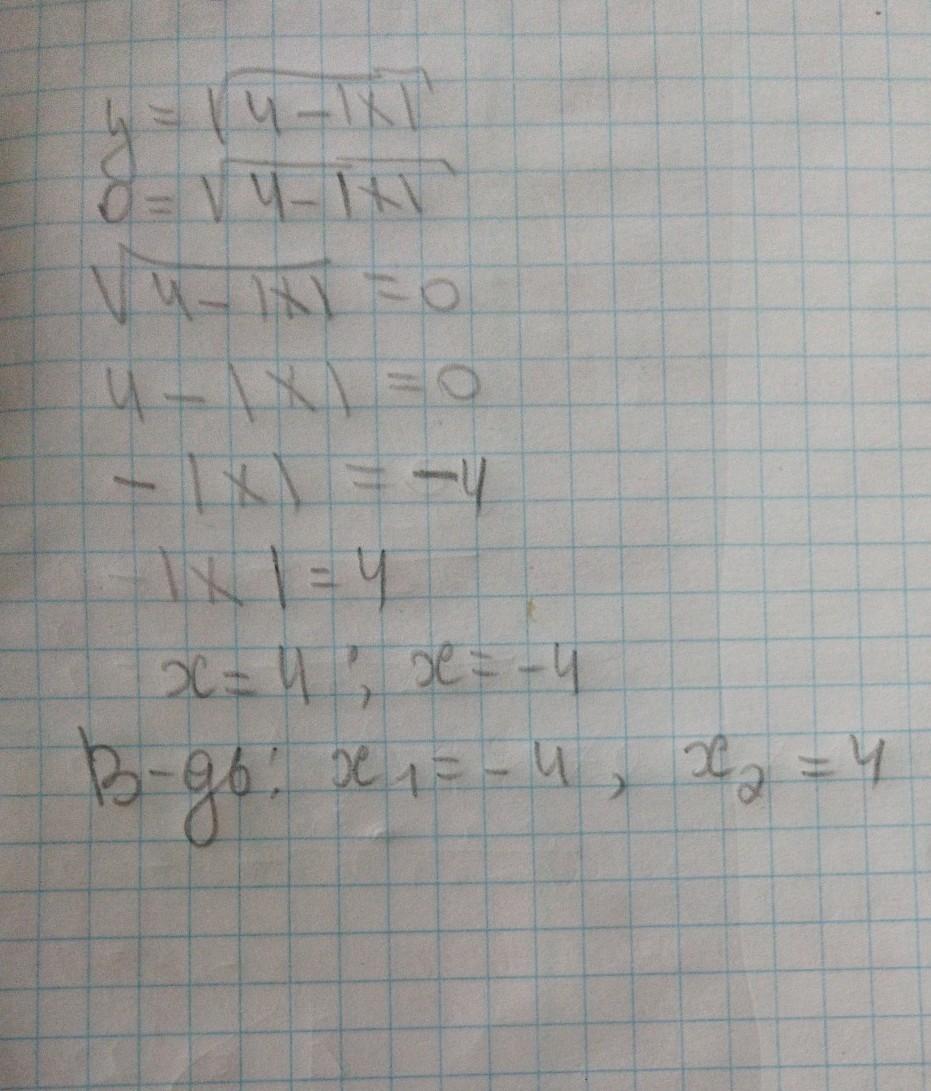 y = √(4 - |x|)
0 = √(4 - |x|)
√(4 - |x|) = 0
4 - |x| = 0
- |x| = -4
|x| = 4
x = 4 ; x = -4
В-дь: x₁ = -4 , x₂ = 4